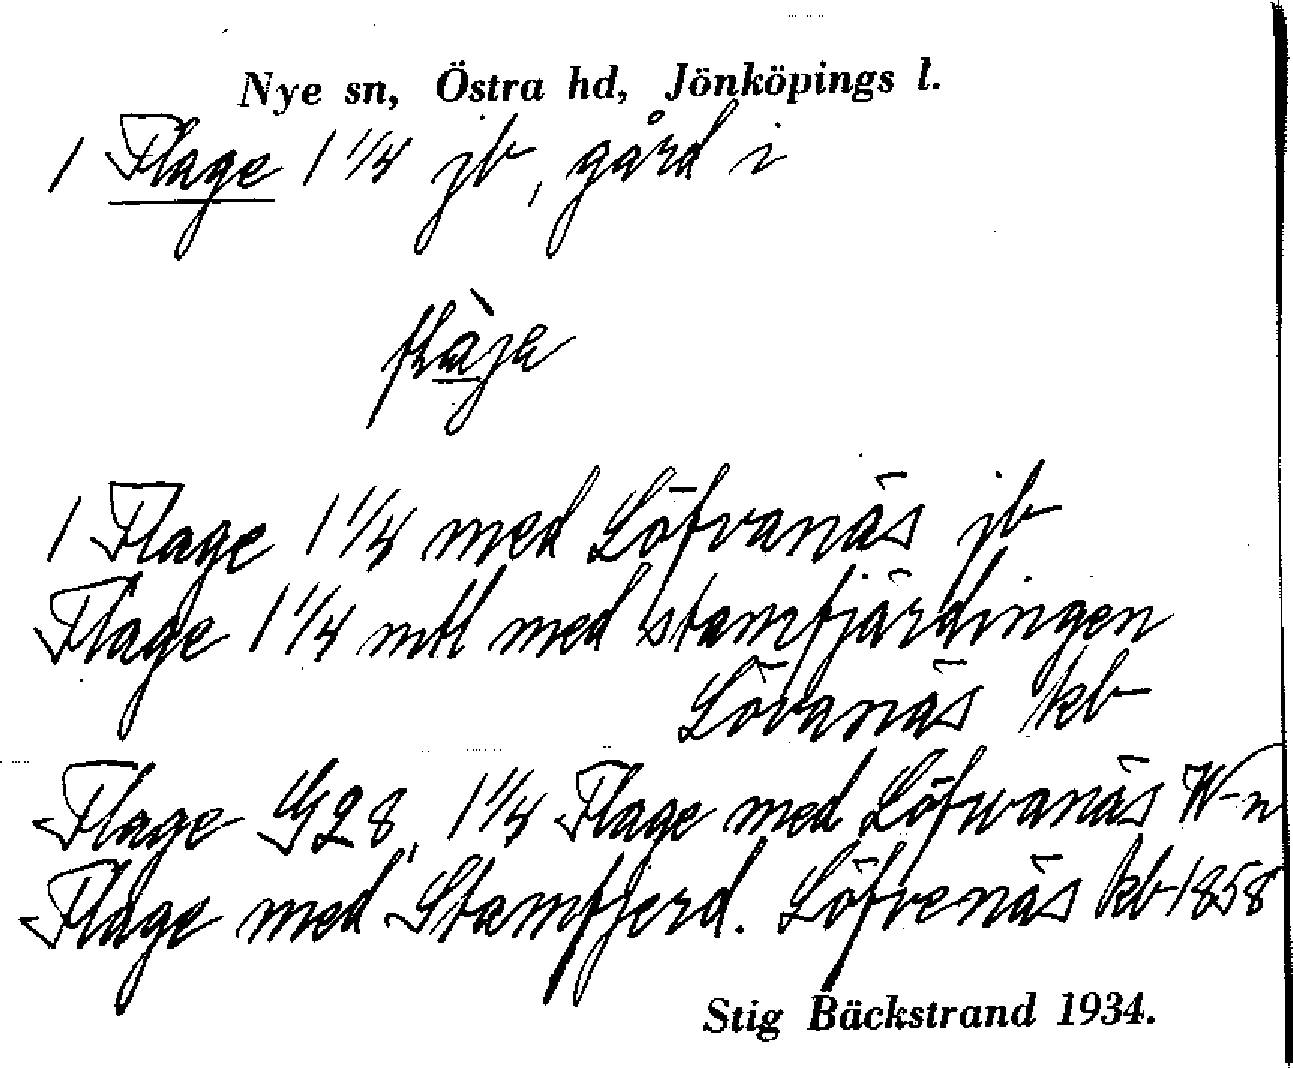 Nye sn, Östra hd, Jönköpings l.
1 Flage 1 1/4 jb, gård i
flàja
1 Flage 1 1/4 med Löfvanäs jb
Flage 1 1/4 mtl med stamfjärdingen
Lövanäs kb
Flage G28, 1 1/4 Flage med Löfwanäs W-n
Flage med Stamfjerd. Löfvenäs kb 1858
Stig Bäckstrand 1934.